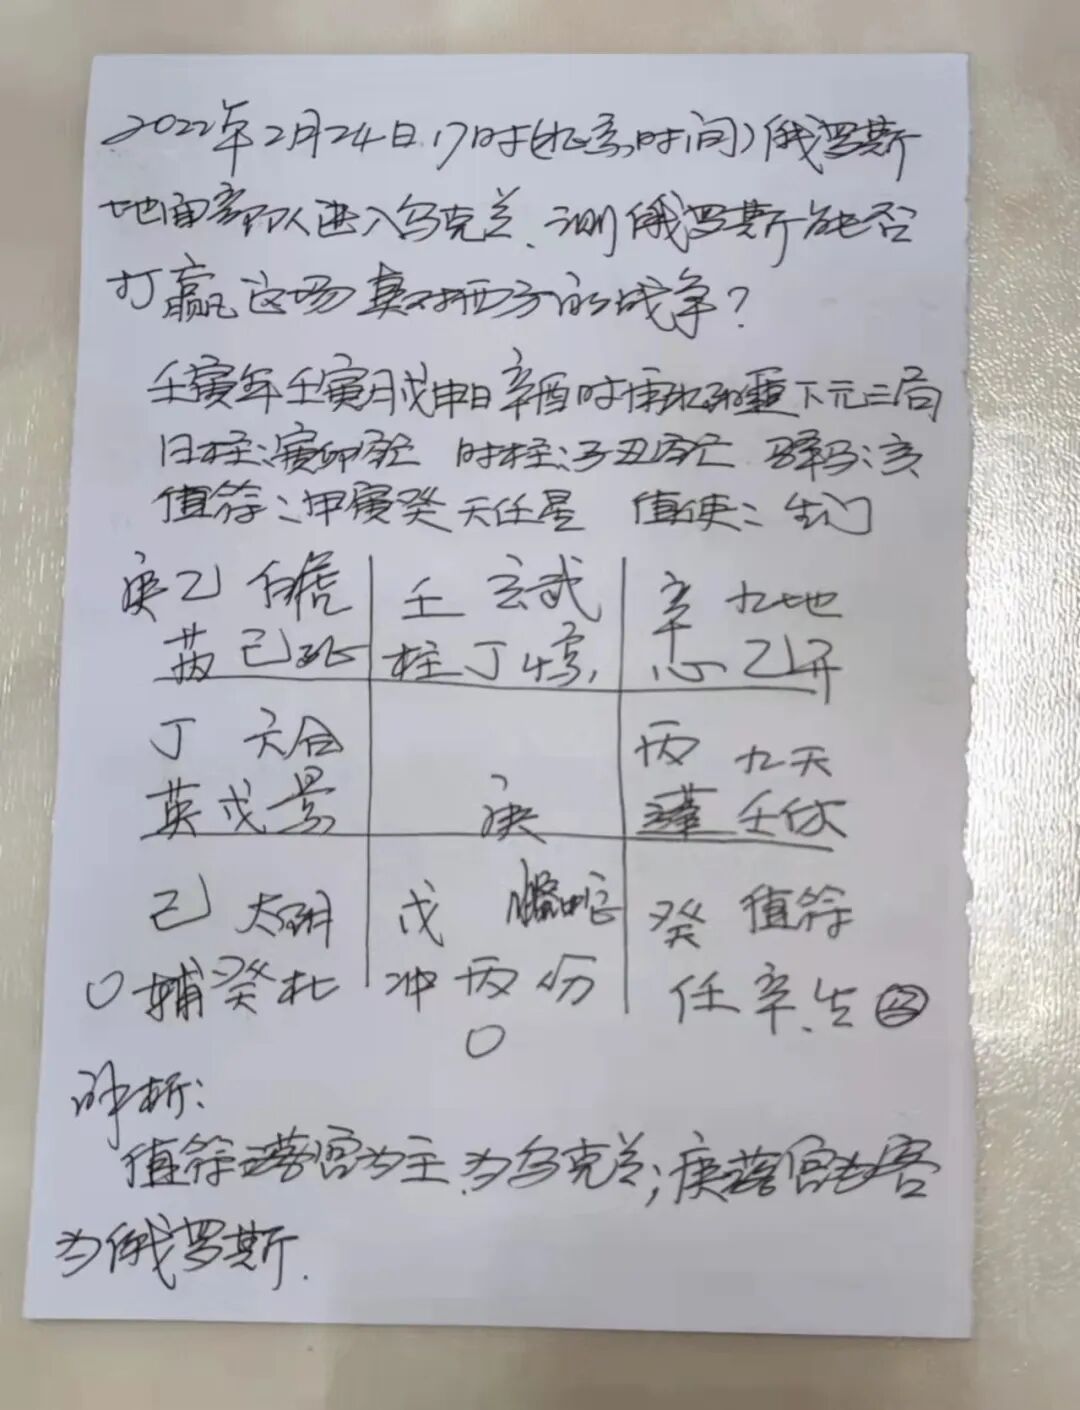 2022年2月24日17时(北京时间)俄罗斯
地面部队进入乌克兰、测俄罗斯能否
打赢这场真对西方的战争?
壬寅年壬寅月戊申日辛酉时 下元三局
日柱:寅卯空亡 时柱:子丑空亡 驿马:亥
值符:甲寅癸 天任星 值使:生门
庚乙 白虎 壬 玄武 辛 九地
芮 己死 柱丁惊 心 乙开
丁 六合 丙 九天
英戊景 庚 蓬壬休
己 太阴 戊 癸 值符
〇辅癸杜 冲丙伤 任辛生 马
〇
评析:
值符落宫为主、为乌克兰;庚落宫为客
为俄罗斯.